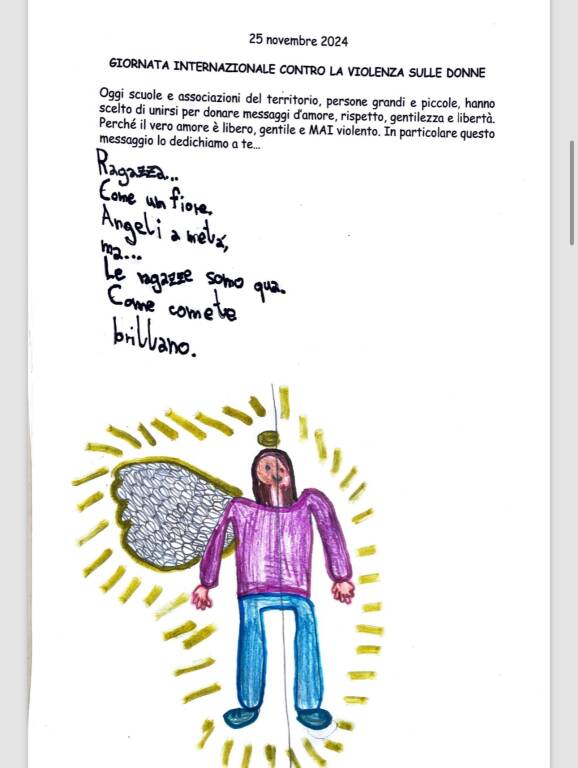 25 novembre 2024
GIORNATA INTERNAZIONALE CONTRO LA VIOLENZA SULLE DONNE
Oggi scuole e associazioni del territorio, persone grandi e piccole, hanno
scelto di unirsi per donare messaggi d'amore, rispetto, gentilezza e libertà.
Perché il vero amore è libero, gentile e MAI violento. In particolare questo
messaggio lo dedichiamo a te...
Ragazza...
Come un fiore.
Angeli a metà,
ma...
Le ragazze sono qua.
Come comete
brillano.